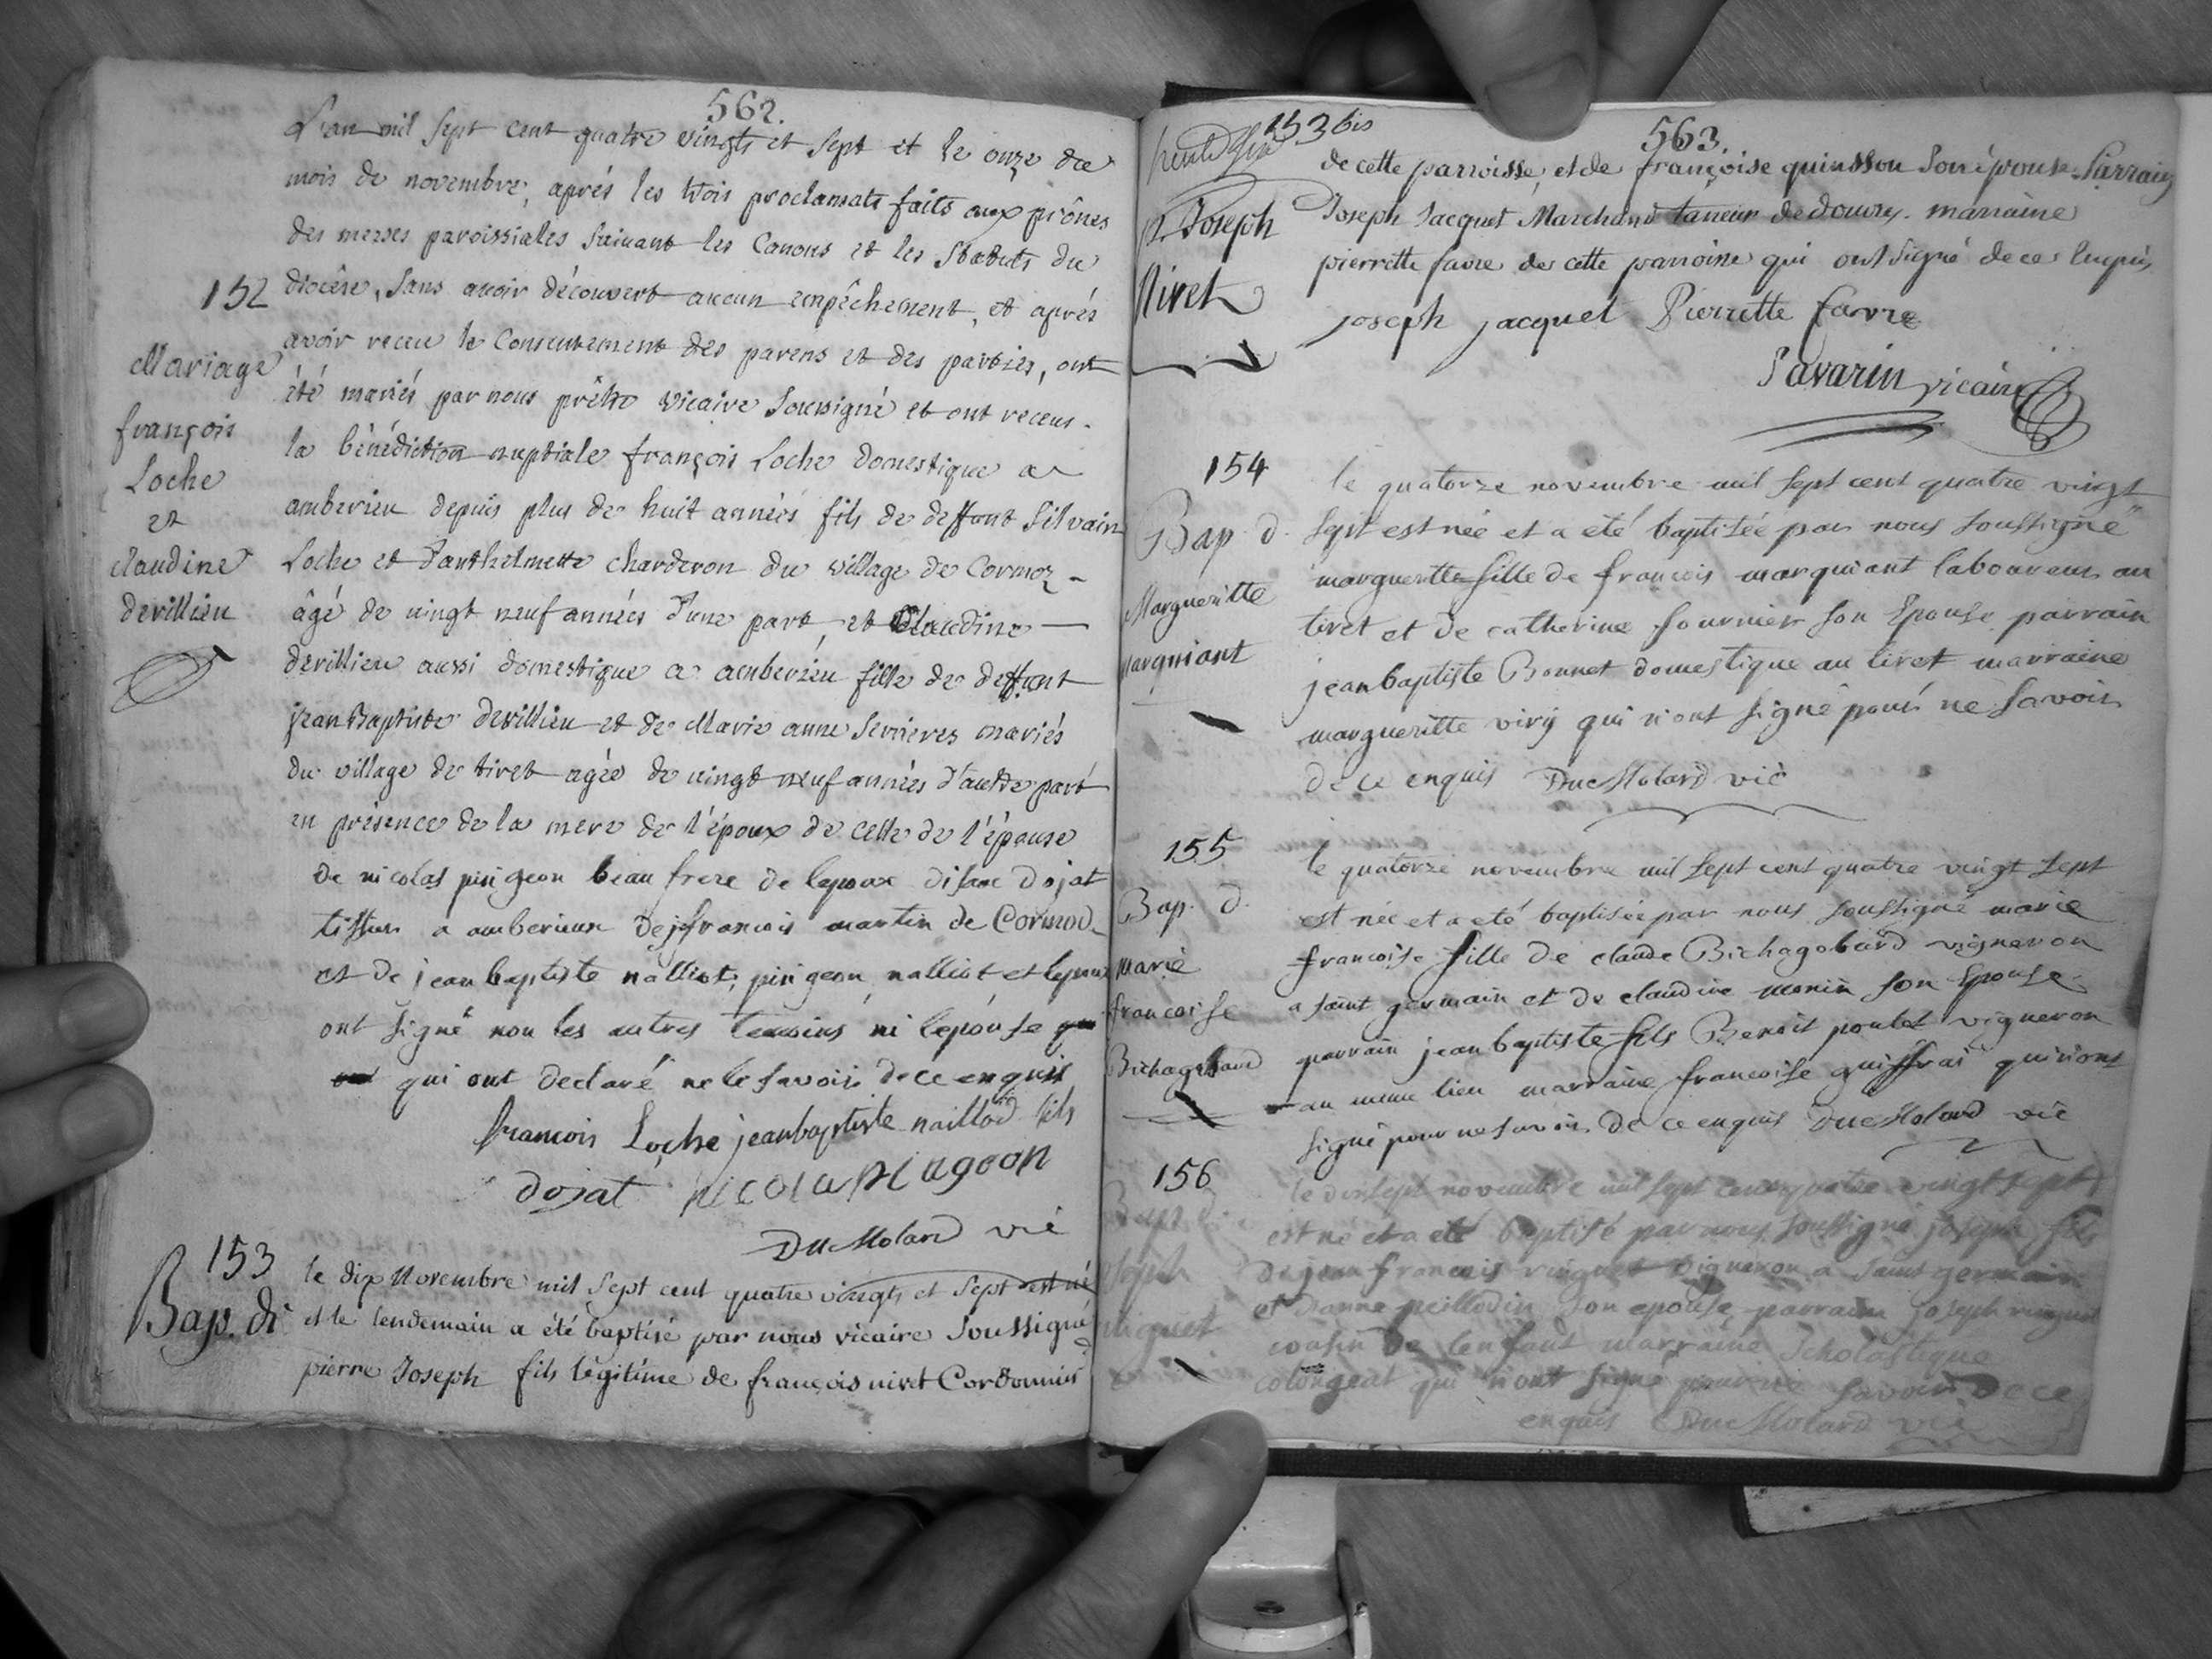 562.
L'an mil sept cent quatre vingts et sept et le onze du
mois de novembre, aprés les trois proclamats faits aux prônes
des messes paroissiales suivant les Canons et les Statuts du
152
diocèse, sans avoir découvert aucun empêchement, et aprés
avoir receu le Consentement des parens et des parties, ont
été mariés par nous prêtre vicaire soussigné et ont receus
la bénédiction nuptiale françois Loche domestique a
amberieu depuis plus de huit années fils de deffunt Silvain
Loche et d'anthelmette charderon du village de Cormoz
âgé de vingt neuf années d'une part, et Claudine
devillieu aussi domestique a amberieu fille de deffunt
jean Baptiste devillieu et de Marie anne Serrieres mariés
du village de tiret agée de vingt neuf années d'autre part
en présence de la mere de l'époux de celle de l'épouse
de nicolas pingeon beau frere de lepoux disaac dojat
tissier a amberieux de jfrancois martin de Cormod
et de jean baptiste nalliot, pingeon, nalliot et lepoux
ont signé non les autres temoins ni lepouse
qui ont declaré ne le savoir de ce enquis
Mariage
françois
Loche
et
claudine
devillieu
francois Loche jean baptiste naillod fils
dojat nicola pingeon
DucMolard vic
153
Bap. di
le dix Novembre mil sept cent quatre vingts et sept est né
et le lendemain a été baptisé par nous vicaire soussigné
pierre Joseph fils légitime de françois nivet Cordonnier
153 bis
563.
p. Joseph
Nivet
de cette parroisse, et de françoise quinsson son épouse Parrain
Joseph Jacquet Marchand taneur de douvres. marraine
pierrette favre de cette parroisse qui ont signé de ce enquis
joseph jacquet Pierrette favre
Savarin vicaire
154
Bap. d.
Margueritte
Marguiant
le quatorze novembre mil sept cent quatre vingt
sept est née et a eté baptisée par nous soussigné
margueritte fille de francois marguiant laboureur au
tiret et de catherine fournier son Epouse parrain
jean baptiste Bonnet domestique au tiret marraine
margueritte viry qui n'ont signé pour ne savoir
de ce enquis DucMolard vic
155
Bap. d.
Marie
francoise
Bichagobard
le quatorze novembre mil sept cent quatre vingt sept
est née et a eté baptisée par nous soussigné marie
francoise fille de claude Bichagobard vigneron
a saint germain et de claudine monin son Epouse
parrain jean baptiste fils Benoit poulet vigneron
au meme lieu marraine francoise guiffrai qui n'ont
signé pour ne savoir de ce enquis DucMolard vic
156
Bap. d.
joseph
le dixsept novembre mil sept cent quatre vingt sept
est né et a eté baptisé par nous soussigné joseph fils
de jean francois vinguet vigneron a saint germain
et danne peillodin son epouse, parrain joseph
cousin de lenfant marraine Scholastique
colongeat qui n'ont signé pour ne savoir de ce
enquis DucMolard vic